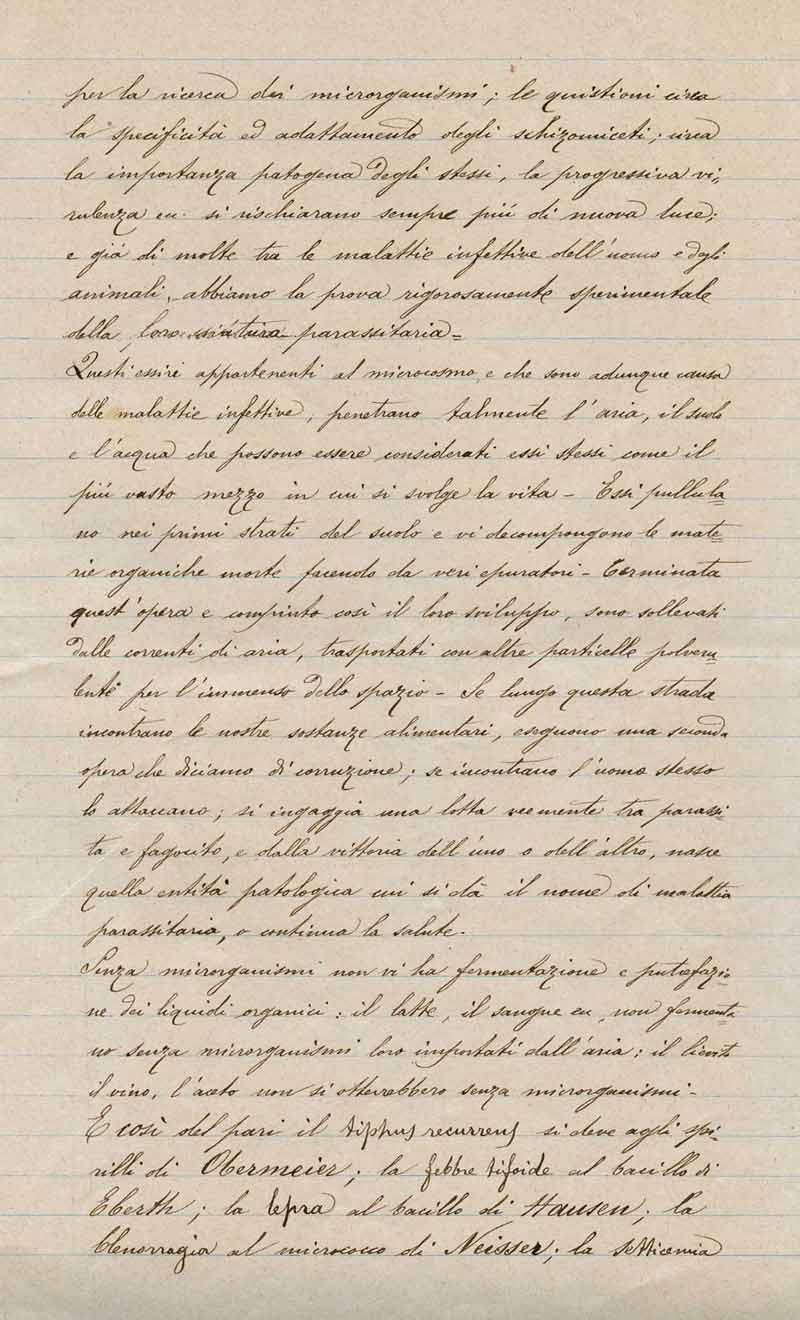 per la ricerca dei microrganismi; le quistioni circa
la specificità ed adattamento degli schizomiceti; circa
la importanza patogena degli stessi, la progressiva vi=
rulenza ecc. si rischiarano sempre piú di nuova luce;
e giá di molte tra le malattie infettive dell'uomo e degli
animali, abbiamo la prova rigorosamente sperimentale
della loro natura parassitaria=
Questi esseri appartenenti al microcosmo, e che sono adunque causa
delle malattie infettive, penetrano talmente l'aria, il suolo
e l'acqua che possono essere considerati essi stessi come il
piú vasto mezzo in cui si svolge la vita - Essi pullula=
no nei primi strati del suolo e vi decompongono le mate=
rie organiche morte facendo da veri epuratori - Terminata
quest'opera e compiuto così il loro sviluppo, sono sollevati
dalle correnti di aria, trasportati con altre particelle polveru=
lente per l'immenso dello spazio - Se lungo questa strada
incontrano le nostre sostanze alimentari, eseguono una seconda
opera che diciamo di corruzione; se incontrano l'uomo stesso
lo attaccano; si ingaggia una lotta veemente tra parassi=
ta e fagocito, e dalla vittoria dell'uno o dell'altro, nasce
quella entità patologica cui si dà il nome di malattia
parassitaria, o continua la salute.
Senza microrganismi non vi ha fermentazione e putrefazio=
ne dei liquidi organici: il latte, il sangue ecc, non fermenta
no senza microrganismi loro importati dall'aria; il lievito
il vino, l'aceto non si otterrebbero senza microrganismi-
E così del pari il tiphus recurrens si deve agli spi=
rilli di Obermeier; la febbre tifoide al bacillo di
Eberth; la lepra al bacillo di Hansen; la
blenorragia al micrococco di Neisser; la setticemia